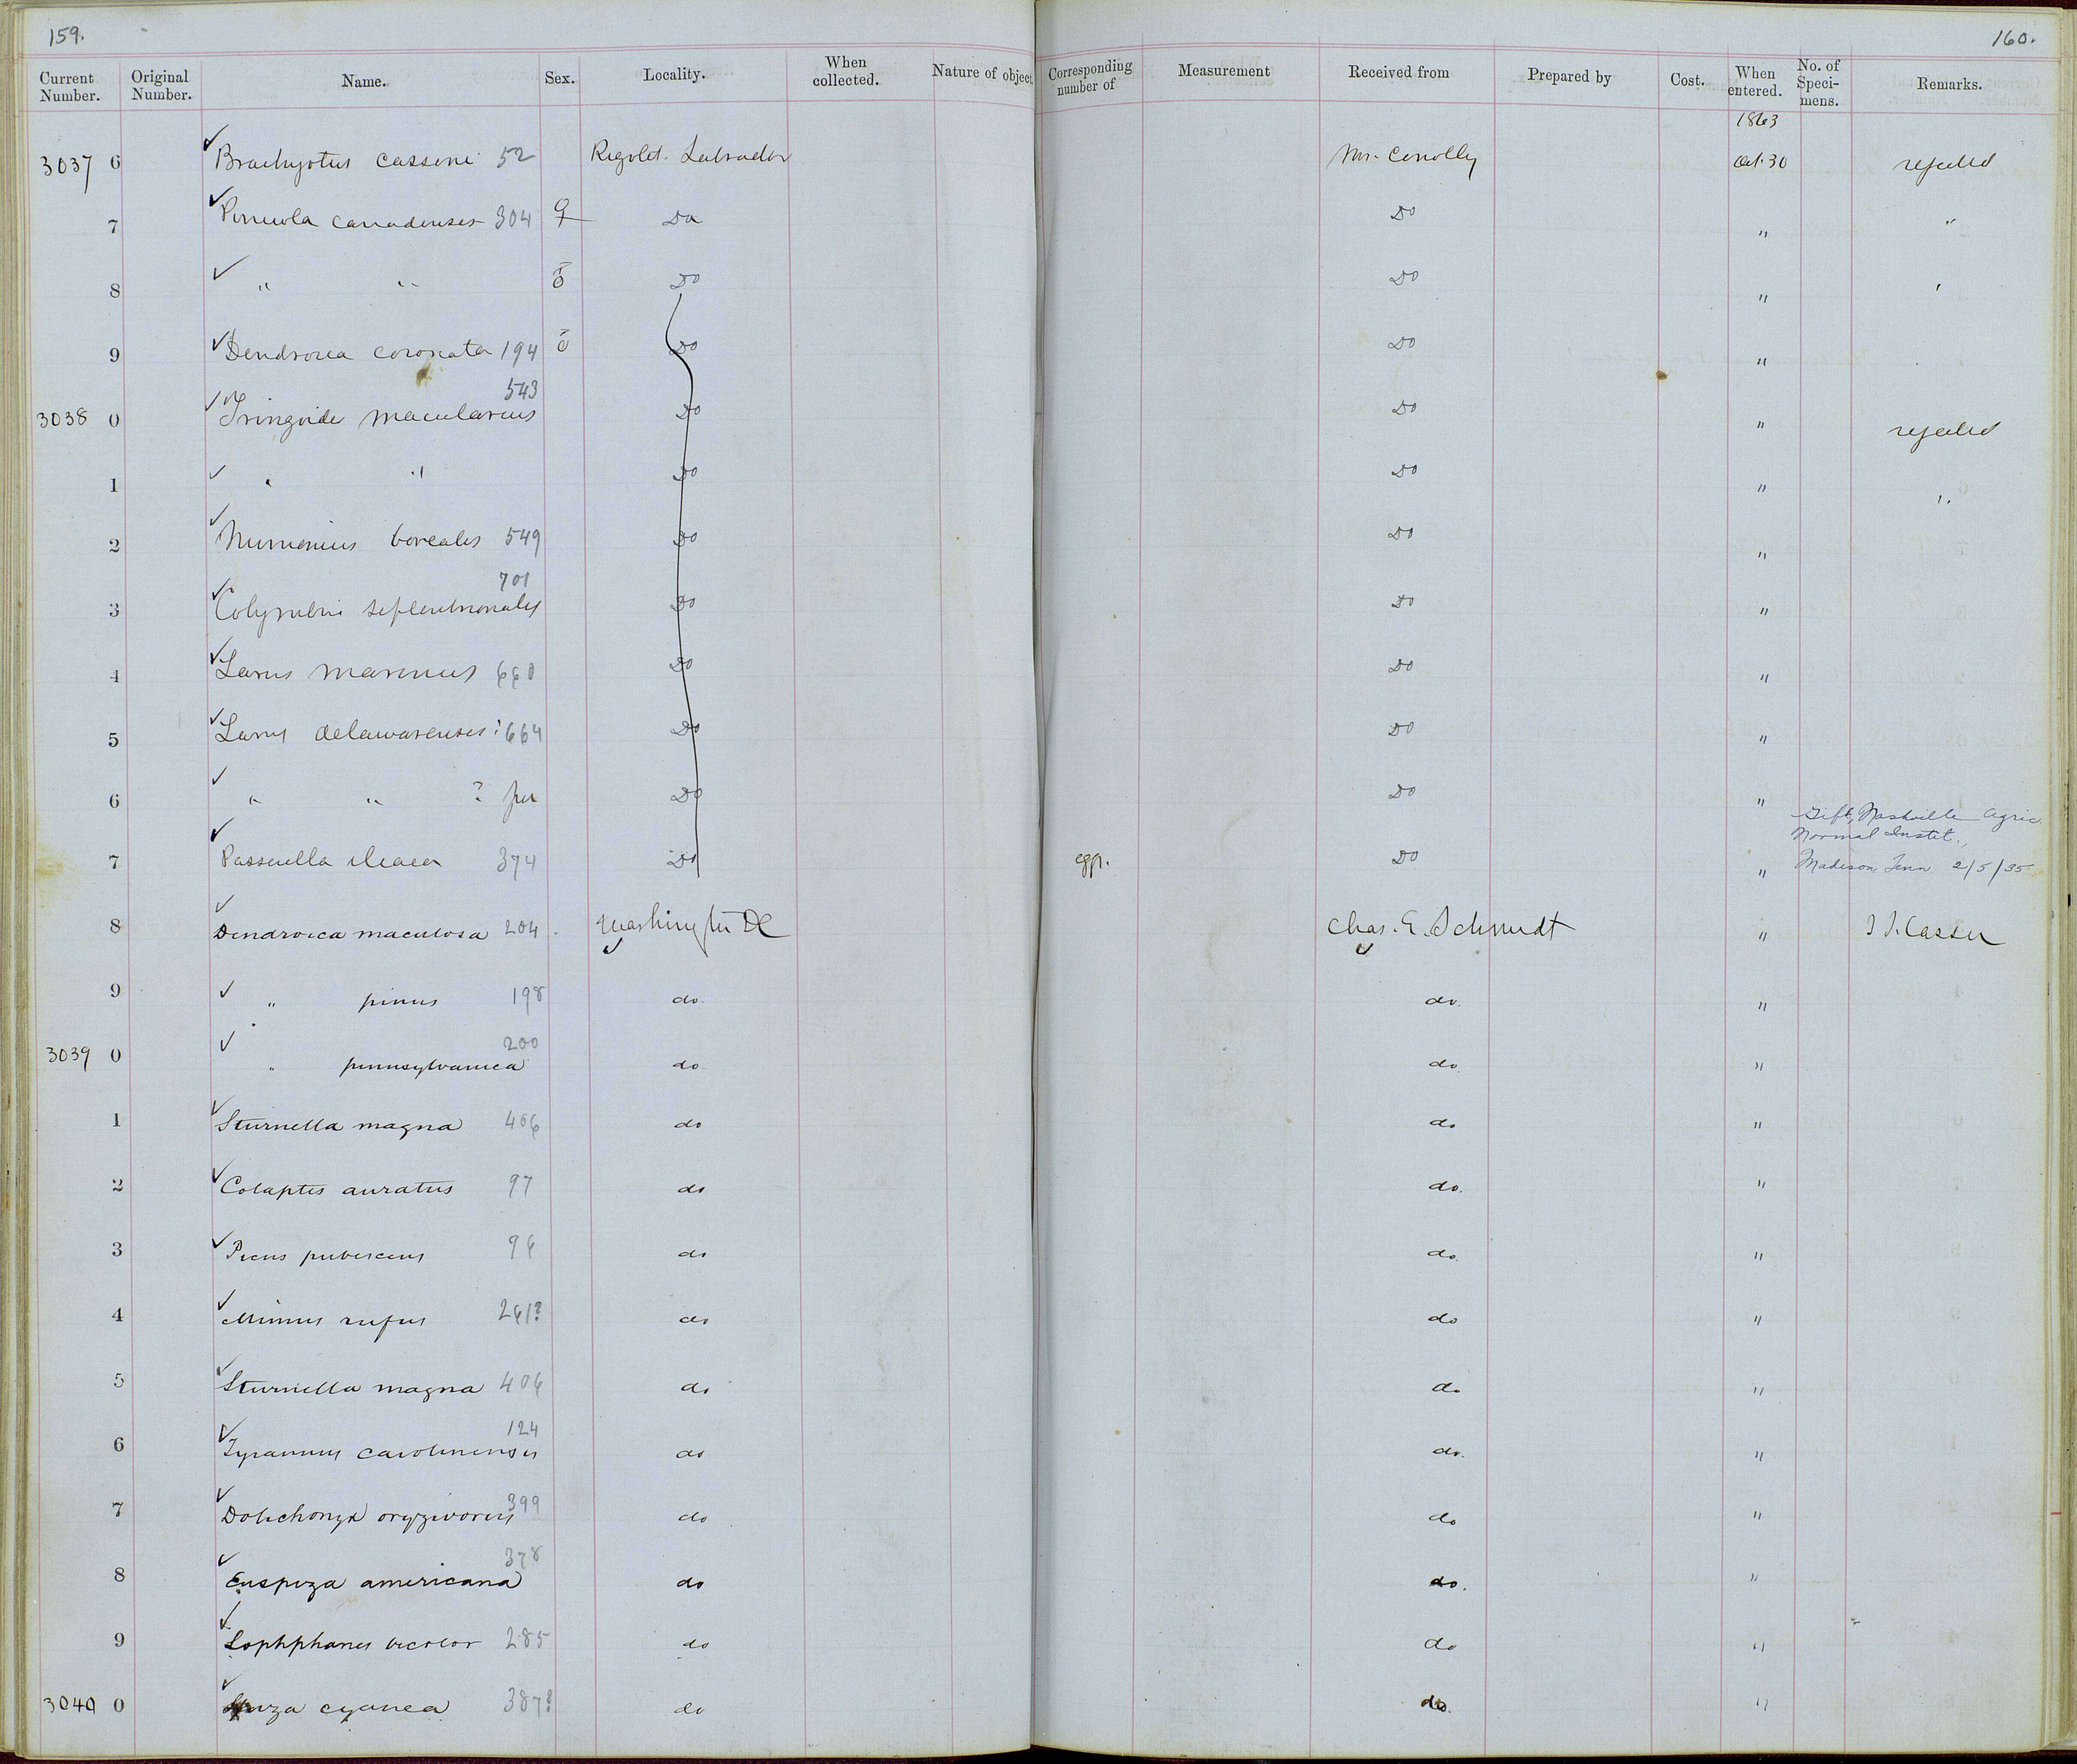 159.
160.
Current Number. Original Number. Name. Sex. Locality. When collected. Nature of object Corresponding number of Measurement Received from Prepared by Cost. When entered. No. of Speci-mens. Remarks.
1863
3037 6 ✓ Brachyotus cassini 52 Rigolet. Labrador Mr. Conolly Oct. 30 rejected
7 ✓ Pinicola canadensis 304 ♀ Do Do " "
8 ✓ " " ♂ Do Do " "
9 ✓ Dendroica coronata 194 ♂ Do Do "
543
3038 0 ✓ Tringoides macularius Do Do " rejected
1 ✓ " " Do Do " "
2 ✓ Numenius borealis 549 Do Do "
701
3 ✓ Colymbus septentrionalis Do Do "
4 ✓ Larus marinus 660 Do Do "
5 ✓ Larus delawarensis? 664 Do Do "
6 ✓ " " ? juv Do Do "
Gift, Nashville Agric.
Normal Instit.,
7 ✓ Passerella iliaca 374 Do Do " Madison Tenn 2/5/35
8 ✓ Dendroica maculosa 204 Washington DC Chas. E. Schmidt "
9 ✓ " pinus 198 do do "
200
3039 0 ✓ " pennsylvanica do do "
1 ✓ Sturnella magna 406 do do "
2 ✓ Colaptes auratus 97 do do. "
3 ✓ Picus pubescens 96 do do. "
4 ✓ Mimus rufus 261? do do "
5 ✓ Sturnella magna 406 do do "
124
6 ✓ Tyrannus carolinensis do do. "
399
7 ✓ Dolichonyx oryzivorus do do "
378
8 ✓ Euspiza americana do do. "
9 ✓ Lophphanes bicolor 285 do do "
3040 0 ✓ cyanea 387? do do. "